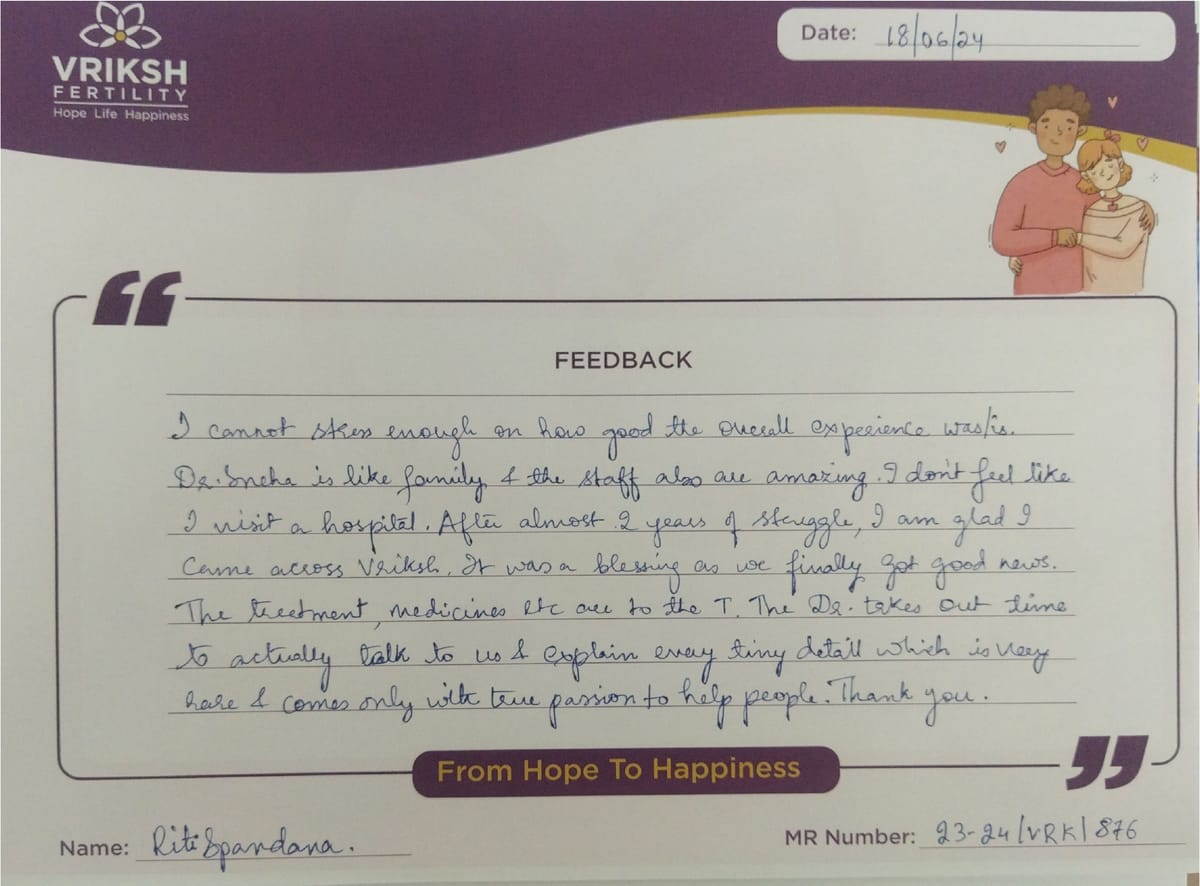 VRIKSH
FERTILITY
Hope Life Happiness
Date: 18/06/24
FEEDBACK
I cannot stress enough on how good the overall experience was/is.
Dr. Sneha is like family & the staff also are amazing. I don't feel like
I visit a hospital. After almost 2 years of struggle, I am glad I
came across Vriksh. It was a blessing as we finally got good news.
The treatment, medicines etc are to the T. The Dr. takes out time
to actually talk to us & explain every tiny detail which is very
rare & comes only with true passion to help people. Thank you.
From Hope To Happiness
Name: Riti Spandana.
MR Number: 23-24/VRK/876